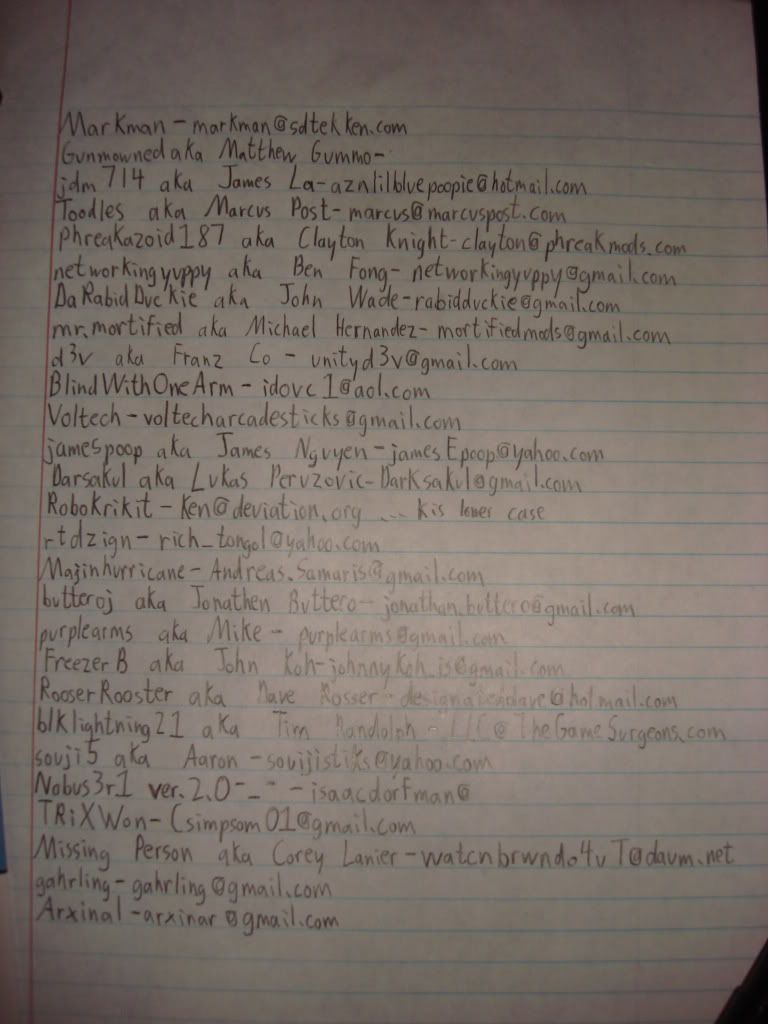 Markman - markman@sdtekken.com
Gunmowned aka Matthew Gummo-
jdm714 aka James La-aznlilbluepoopie@hotmail.com
Toodles aka Marcus Post- marcus@marcuspost.com
Phreakazoid187 aka Clayton Knight-clayton@phreakmods.com
networkingyuppy aka Ben Fong- networkingyuppy@gmail.com
DaRabidDuckie aka John Wade-rabidduckie@gmail.com
mr.mortified aka Michael Hernandez- mortifiedmods@gmail.com
d3v aka Franz Co - unityd3v@gmail.com
BlindWithOneArm - idovc1@aol.com
Voltech-voltecharcadesticks@gmail.com
jamespoop aka James Nguyen-jamesEpoop@yahoo.com
Darsakul aka Lukas Peruzovic-Darksakul@gmail.com
RoboKrikit - Ken@deviation.org ... k is lower case
rtdzign- rich_tongol@yahoo.com
Mazinhurricane- Andreas.Samaris@gmail.com
butteroj aka Jonathen Buttero- jonathan.buttero@gmail.com
purplearms aka Mike - purplearms@gmail.com
FreezerB aka John Koh-johnnykoh_is@gmail.com
RooserRooster aka Dave Rosser-@hotmail.com
blklightning21 aka Tim Randolph - LLC@TheGameSurgeons.com
souji5 aka Aaron - soujistiks@yahoo.com
Nobus3r1 ver.2.0-_- - isaacdorfman@
TRiXWon- Csimpsom01@gmail.com
Missing Person aka Corey Lanier-watcnbrwndo4uT@daum.net
gahrling- gahrling@gmail.com
Arxinal -arxinar@gmail.com